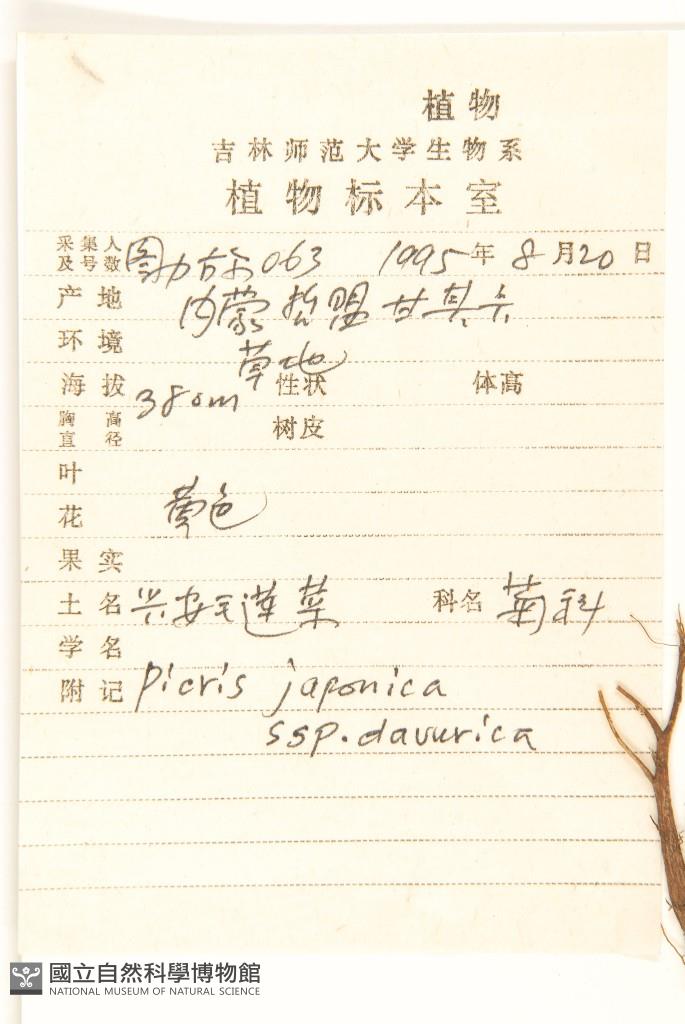 植物
吉林师范大学生物系
植物标本室
采集人及号数 图力古尔 063 1995年8月20日
产地 内蒙哲盟甘其卡
环境 草地
海拔 380m 性状 体高
胸高直径 树皮
叶
花 黄色
果实
土名 兴安毛莲菜 科名 菊科
学名
附记 Picris japonica
ssp. davurica
國立自然科學博物館
NATIONAL MUSEUM OF NATURAL SCIENCE